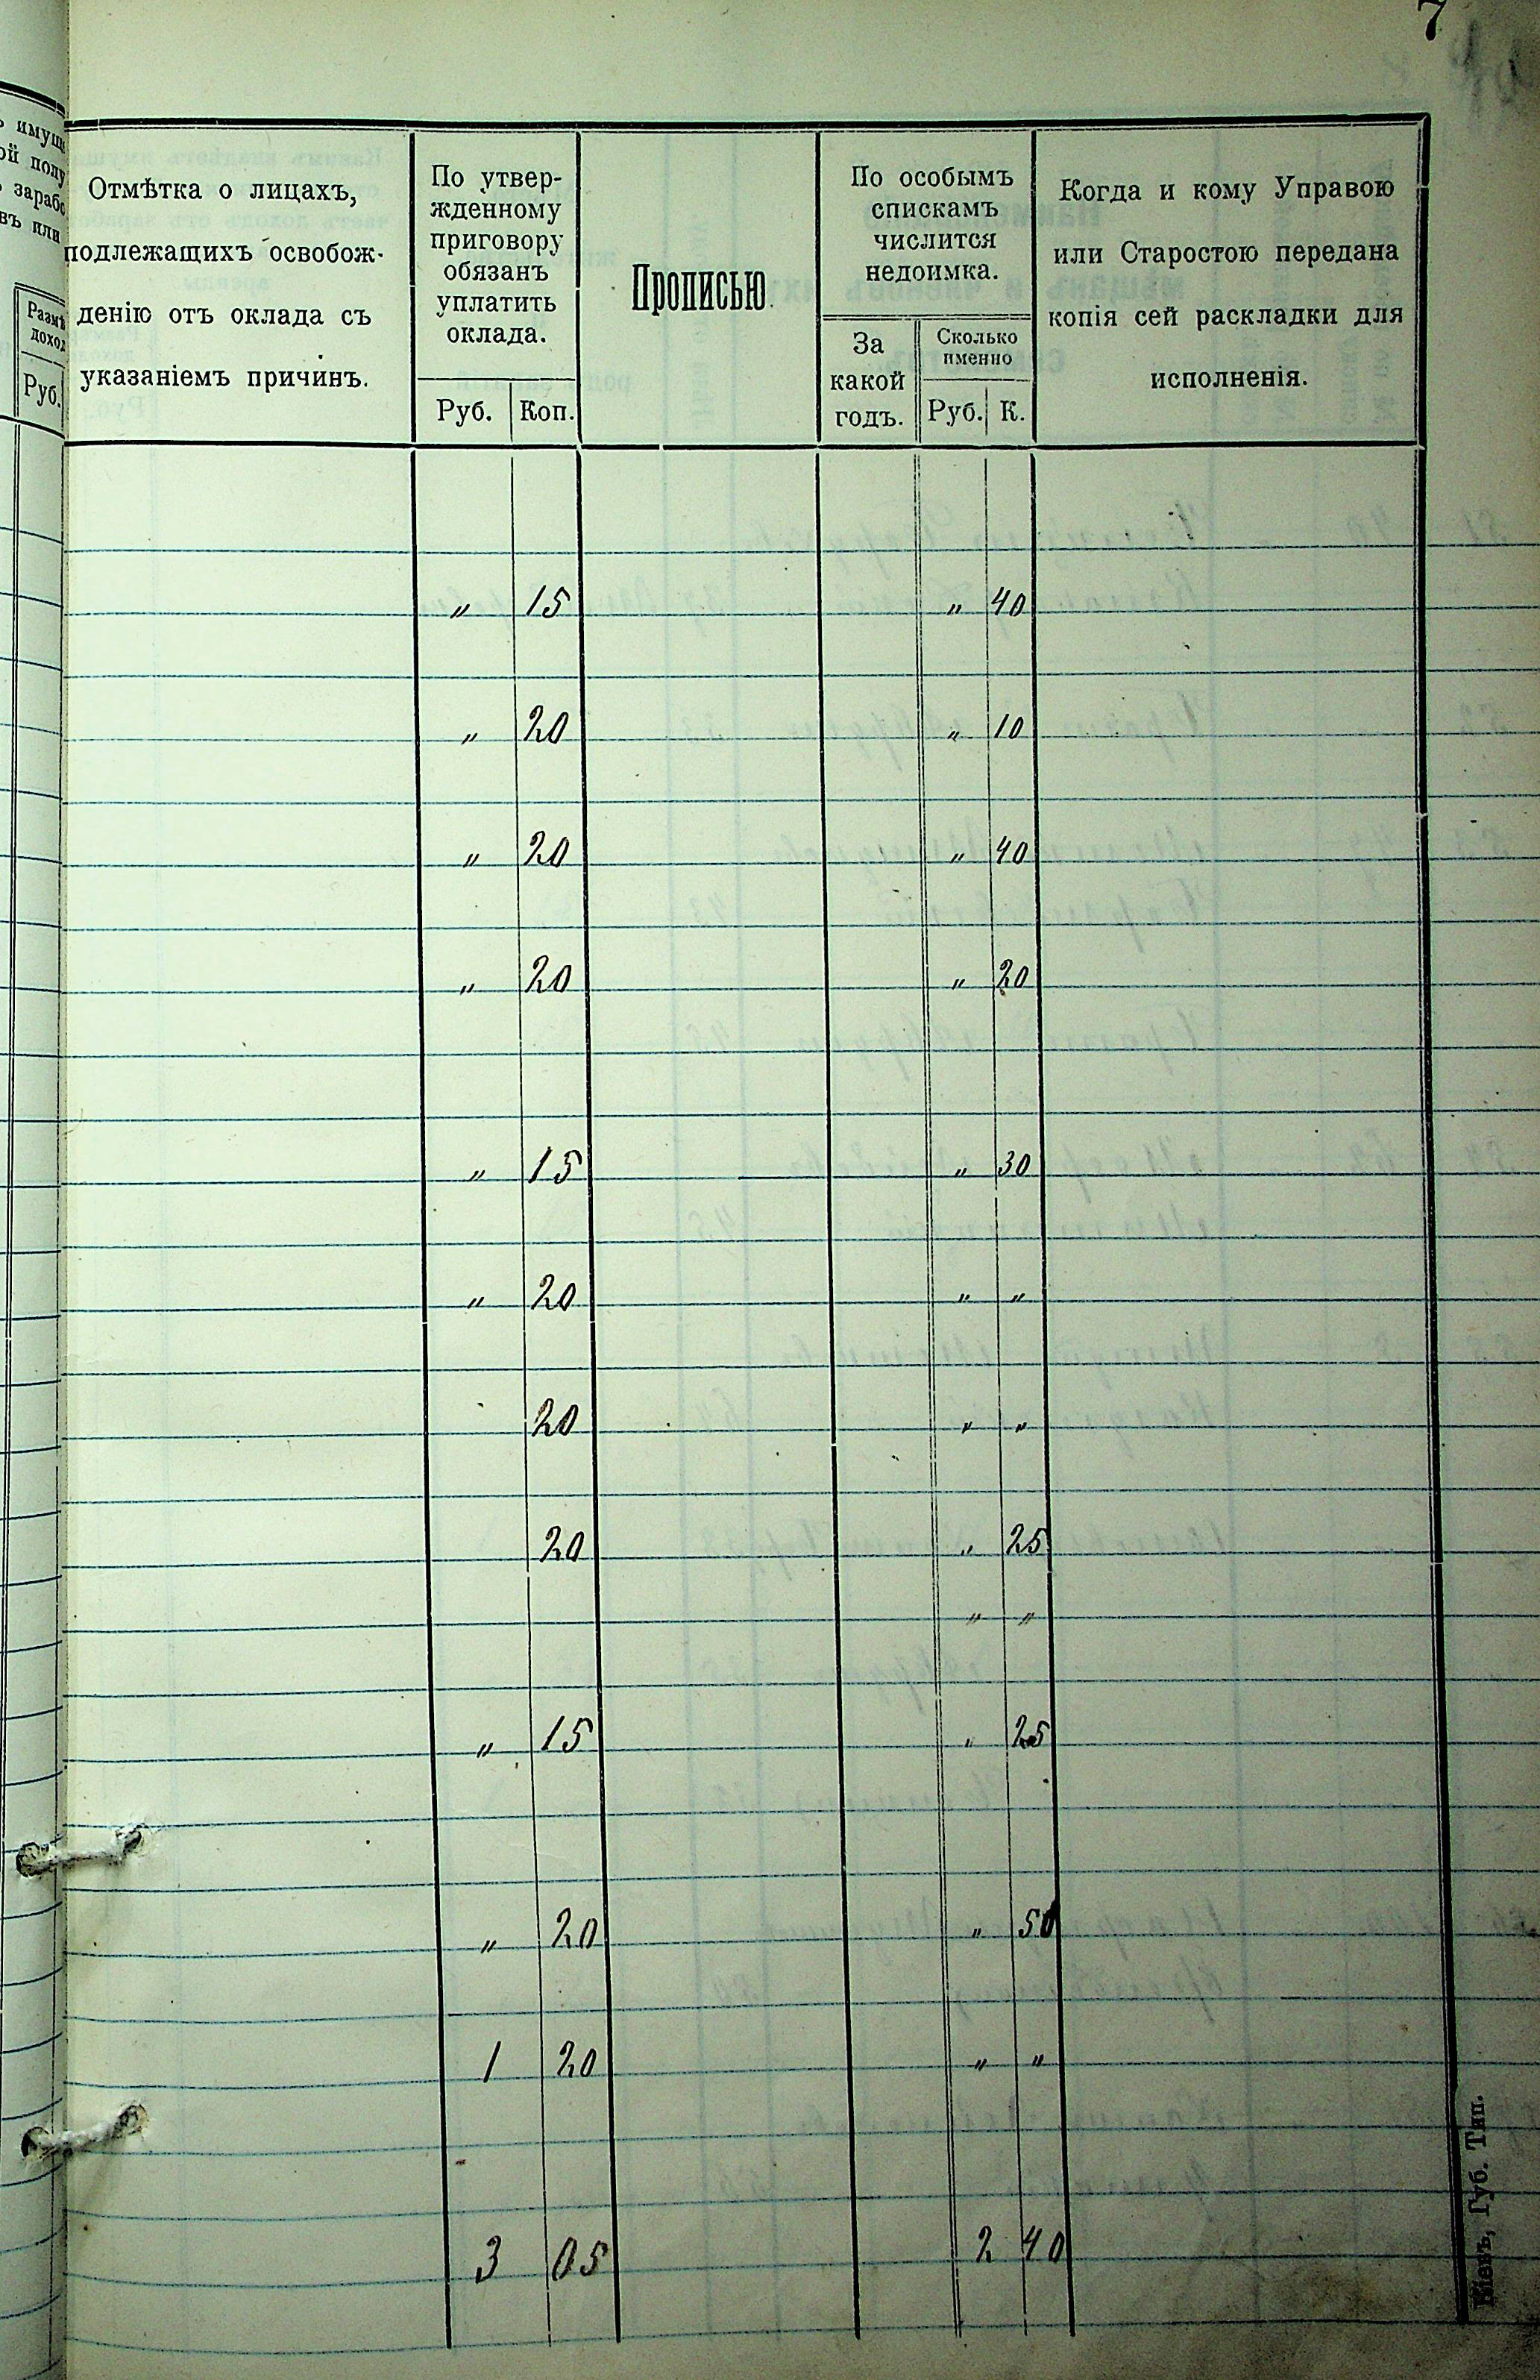 7
ъ имущ
ой полу
ъ зарабо
въ или
Размѣ
доход
Руб.
Отмѣтка о лицахъ,
подлежащихъ освобож-
денію отъ оклада съ
указаніемъ причинъ.
По утвер-
жденному
приговору
обязанъ
уплатить
оклада.
Руб. Коп.
Прописью.
По особымъ
спискамъ
числится
недоимка.
За
какой
годъ.
Сколько
именно
Руб. К.
Когда и кому Управою
или Старостою передана
копія сей раскладки для
исполненія.
" 15 " 40
" 20 " 10
" 20 " 40
" 20 " 20
" 15 " 30
" 20 " "
20 " "
20 " 25
" "
" 15 " 25
" 20 " 50
1 20 " "
3 05 2 40
Кіевъ, Губ. Тип.